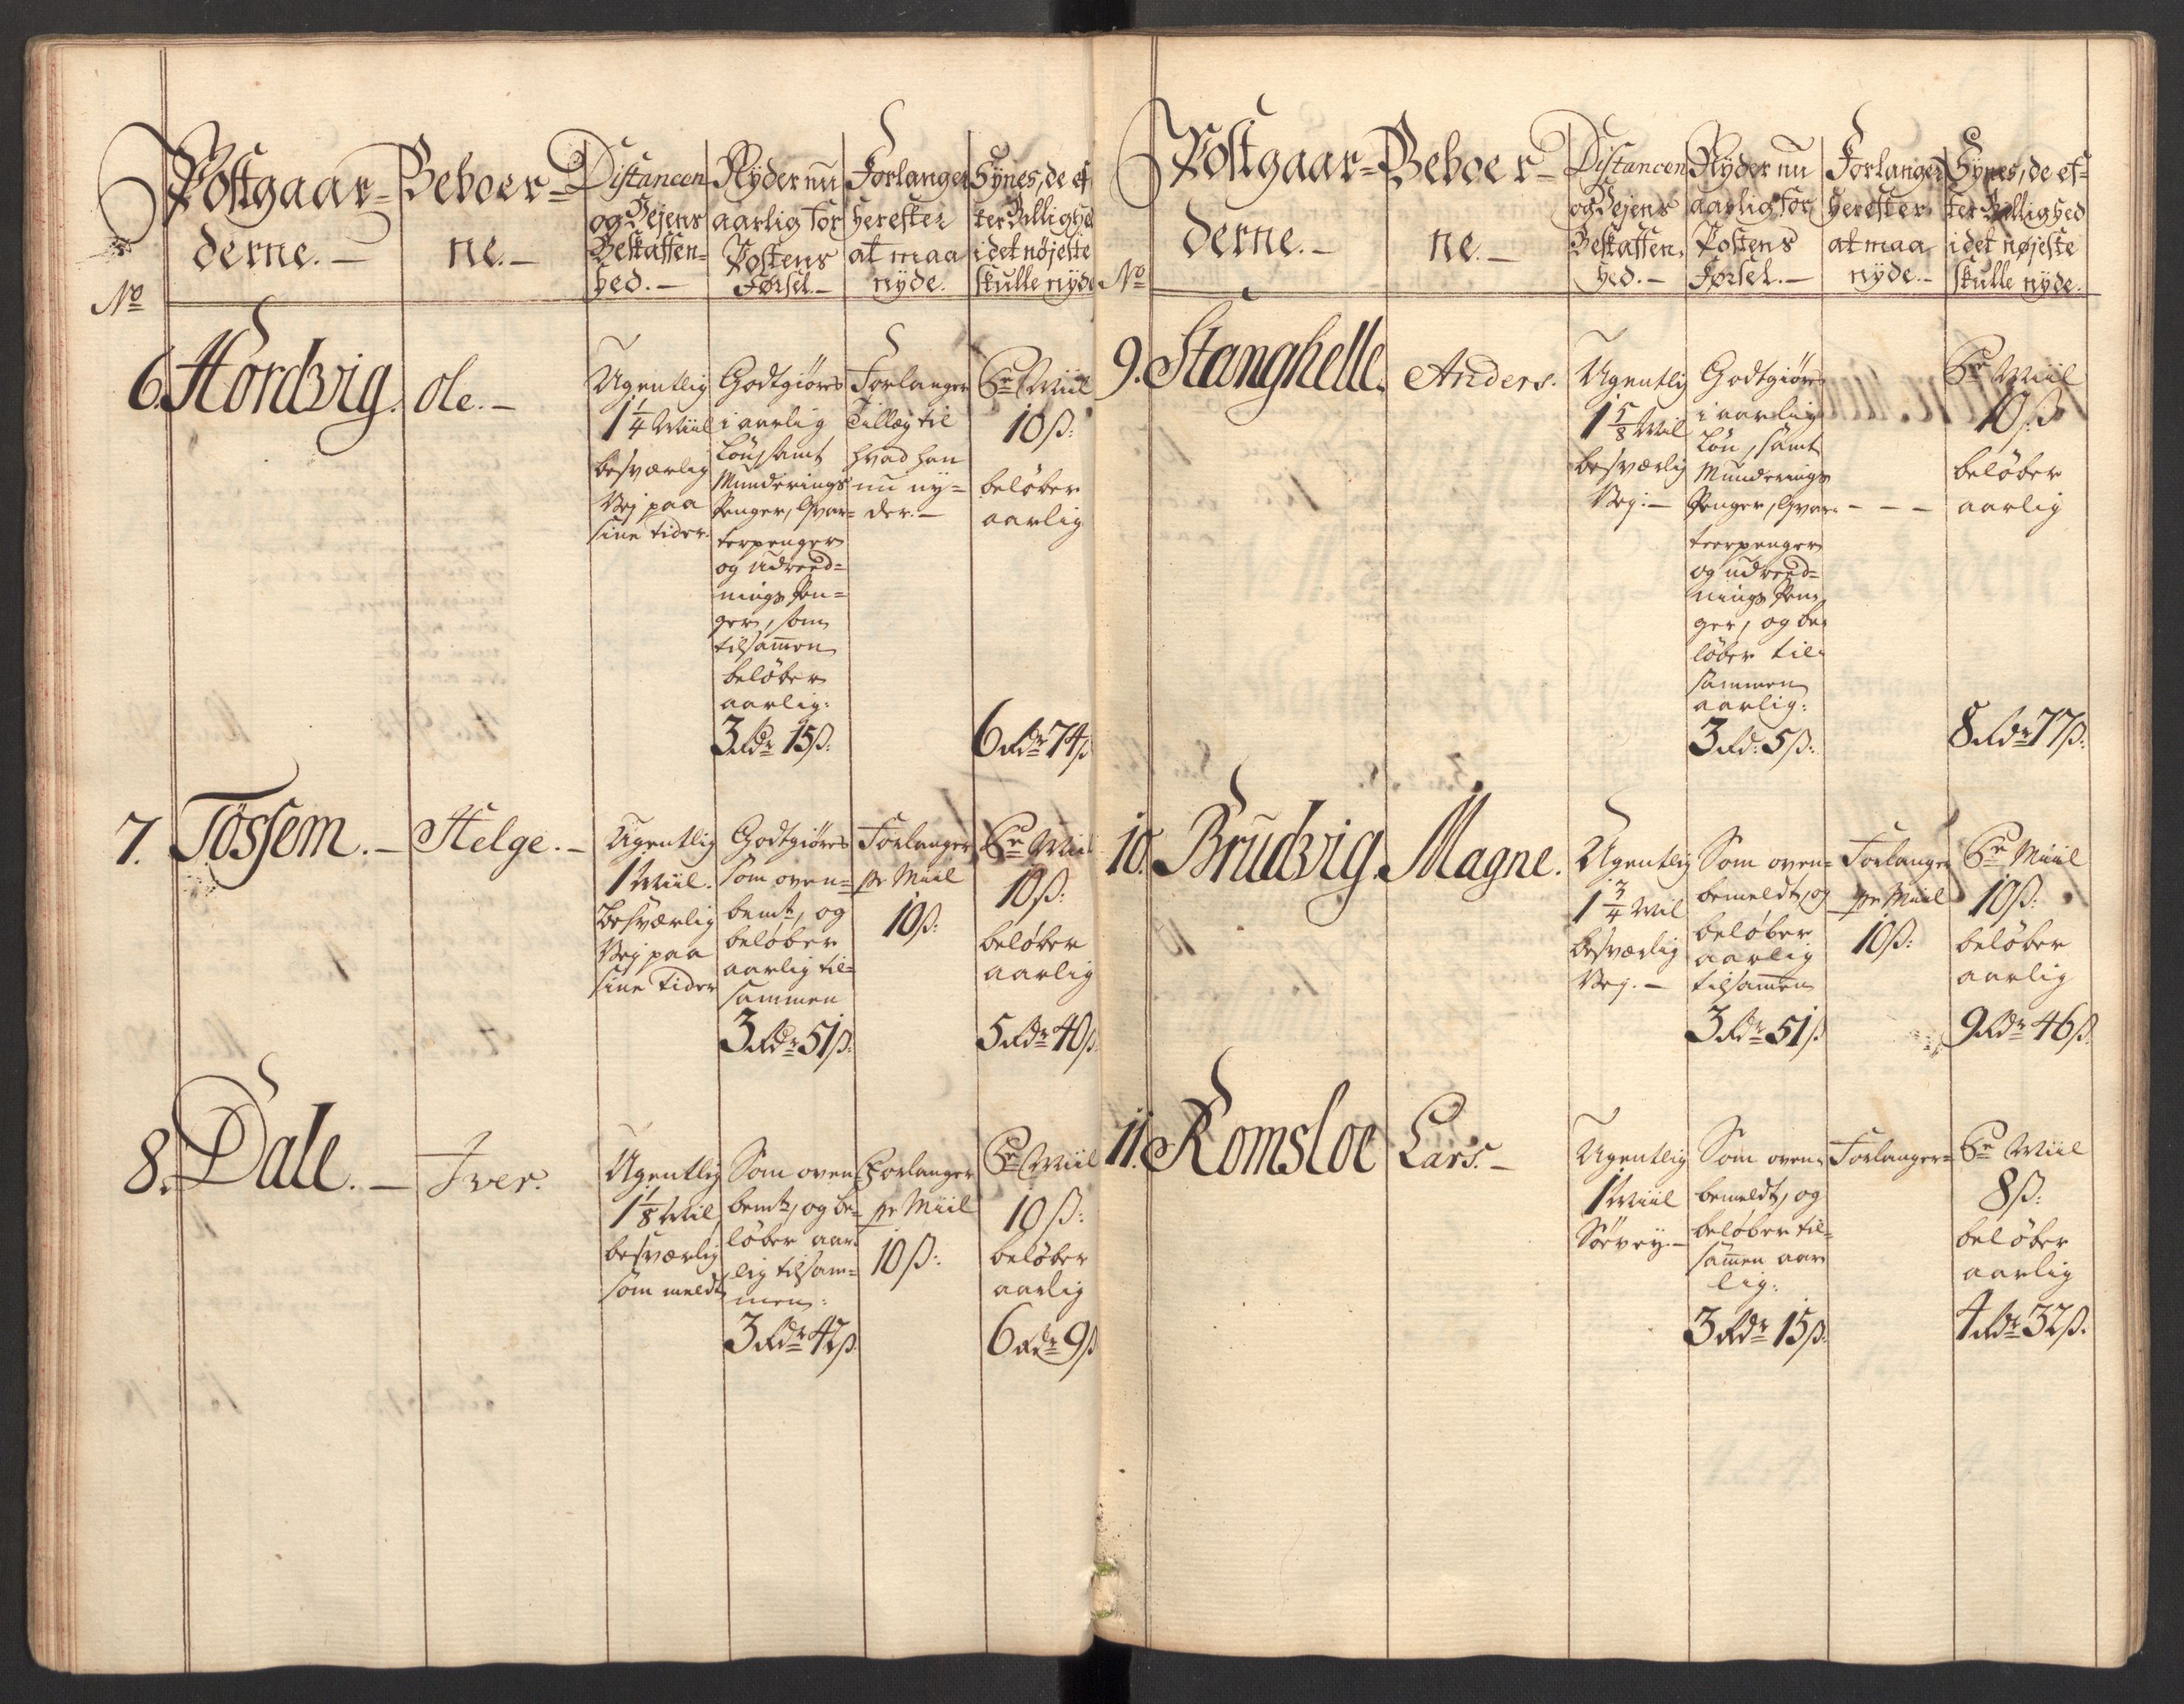 No
Postgaar=
derne.—
Beboer=
ne.—
Distancen
og Vejens
Beskaffen=
hed.—
Nyder nu
aarlig for
Postens
Førsel.—
Forlanger
herefter
at maa
nyde.
Synes, de ef
ter Billighed
i det nøjeste
skulle nyde
6. Hordvig.
Ole.—
Ugentlig
1 1/4 Miil
besværlig
Vej paa
sine tider.
Godtgiøres
i aarlig
Løn, samt
Munderings
Penger, Qvar=
teerpenger
og Udreed=
nings Pen=
ger, som
tilsam̄en
beløber
aarlig:
3 Rdr 15 ß:
Forlanger
Tillæg til
hvad han
nu ny=
der.—
Pr Miil
10 ß:
beløber
aarlig
6 Rdr 74 ß
7. Tøssem.—
Helge.—
Ugentlig
1 Miil.
besværlig
Vej paa
sine tider
Godtgiøres
som oven=
bemt, og
beløber
aarlig til=
sammen
3 Rdr 51 ß:
Forlanger
pr Miil
10 ß:
Pr Miil
10 ß:
beløber
aarlig
5 Rdr 40 ß.
8. Dale.—
Iver.
Ugentlig
1 1/8 Miil
besværlig
som meldt
Som oven
bemt, og be=
løber aar=
lig tilsam=
men:
3 Rdr 42 ß
Forlanger
pr Miil
10 ß:
Pr Miil
10 ß:
beløber
aarlig
6 Rdr 9 ß
No
Postgaar=
derne.—
Beboer=
ne.—
Distancen
og Vejens
Beskaffen=
hed.—
Nyder nu
aarlig for
Postens
Førsel.—
Forlanger
herefter
at maa
nyde.—
Synes, de ef=
ter Billighed
i det nøjeste
skulle nyde.
9. Stanghelle.
Anders.
Ugentlig
1 5/8 Miil
besværlig
Vej:—
Godtgiøres
i aarlig
Løn, samt
Munderings
Penger, Qvar=
teerpenger
og udreed=
nings Pen=
ger, og be=
løber til=
sammen
aarlig:
3 Rd: 5 ß:
— — —
Pr Miil
10 ß
beløber
aarlig
8 Rdr 77 ß:
10. Brudvig.
Magne.
Ugentlig
1 3/4 Miil
besværlig
Vej.—
Som oven=
bemeldt, og
beløber
aarlig
tilsam̄en
3 Rdr 51 ß
Forlanger
pr Miil
10 ß:
Pr Miil
10 ß:
beløber
aarlig
9 Rdr 46 ß.
11. Romsloe
Lars.—
Ugentlig
1 Miil
Søevej.—
Som oven=
bemeldt, og
beløber til=
sam̄en aar
lig:
3 Rdr 15 ß:
Forlanger=
Pr Miil
8 ß:
beløber
aarlig
4 Rdr 32 ß.